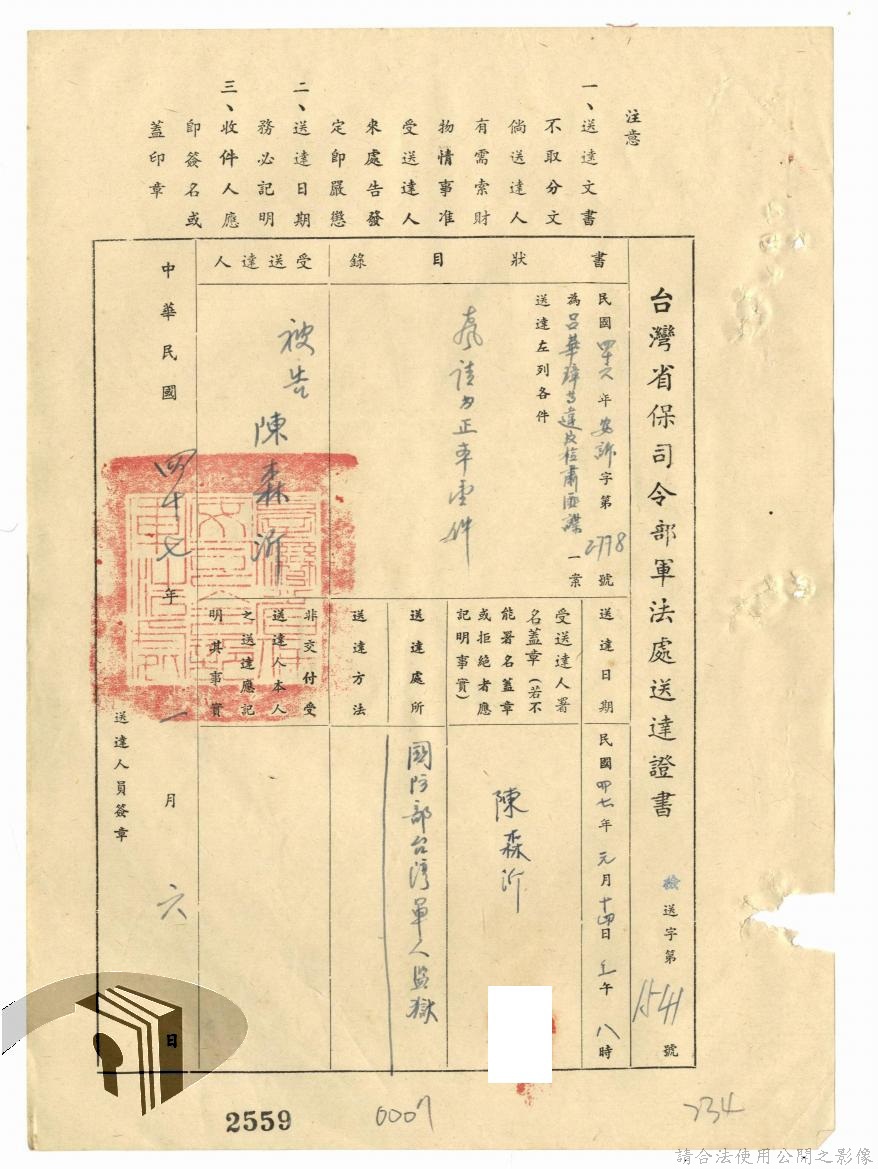 注意
一、送達文書
不取分文
倘送達人
有需索財
物情事准
受送達人
來處告發
定即嚴懲
二、送達日期
務必記明
三、收件人應
即簽名或
蓋印章
台灣省保司令部軍法處送達證書
檢送字第1541號
書狀目錄
民國四十六年安訴字第2778號
為呂華璋等違反檢肅匪諜一案
送達左列各件
請 正本壹件
受送達人
被告陳森沂
送達日期
民國四七年元月十四日上午八時
受送達人署
名蓋章(若不
能署名蓋章
或拒絕者應
記明事實)
陳森沂
送達處所
國防部台灣軍人監獄
送達方法
非交付受
送達人本人
之送達應記
明其事實
中華民國四十七年一月六日
送達人員簽章
2559
0007
234
請合法使用公開之影像